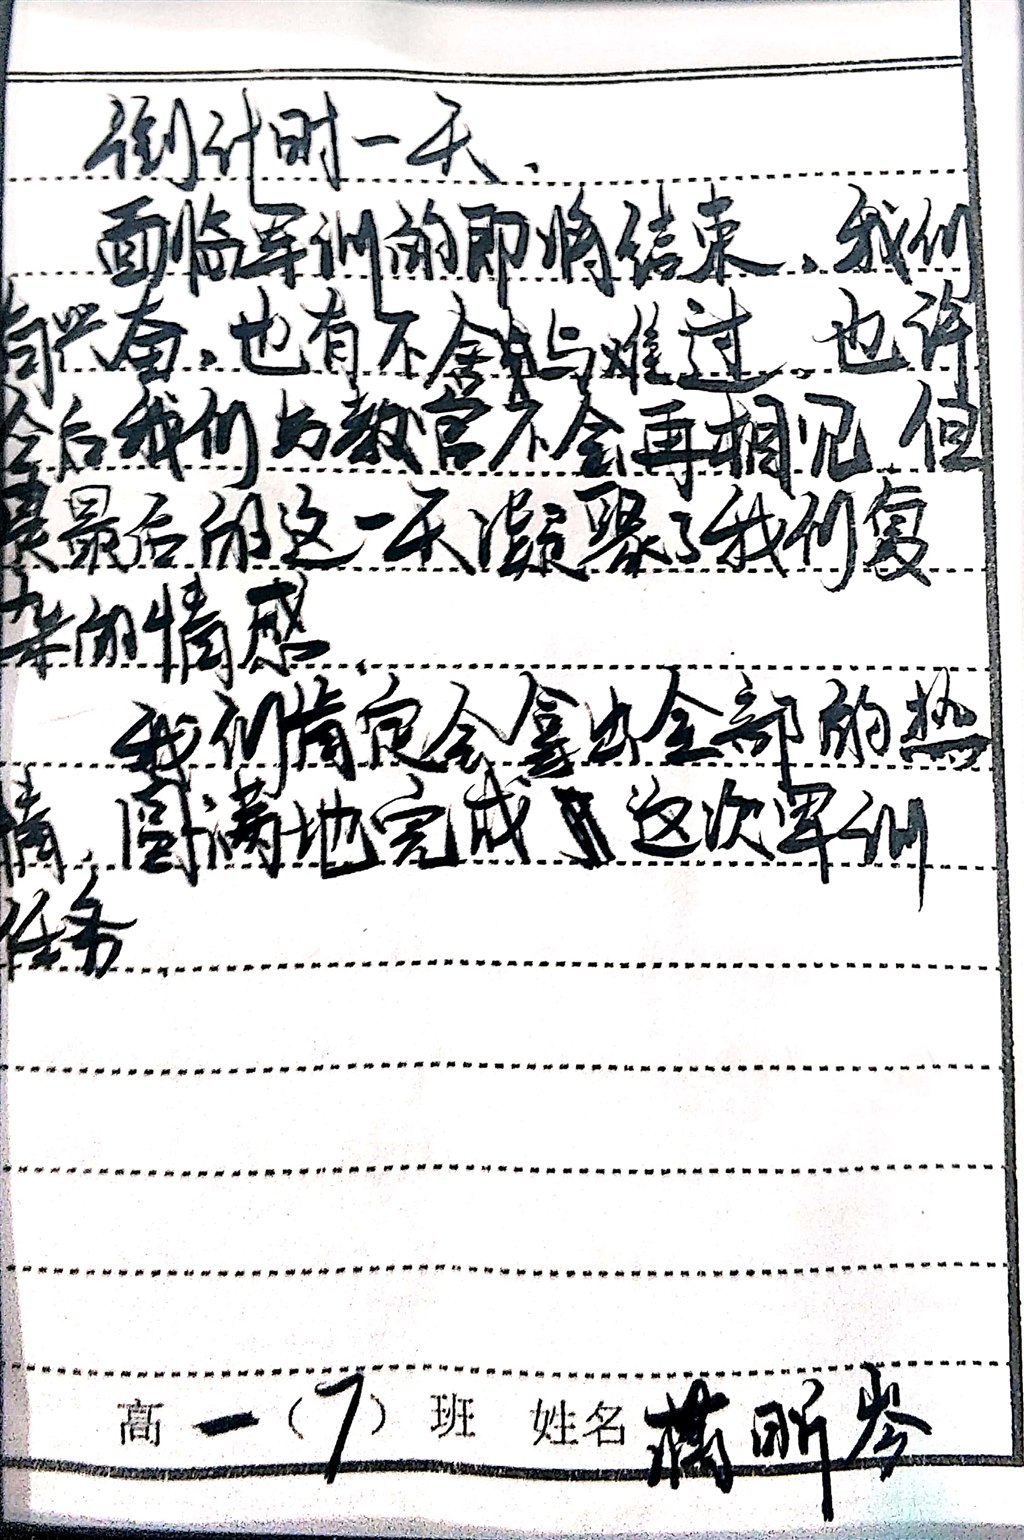 倒计时一天.
面临军训的即将结束,我们
有兴奋,也有不舍与难过,也许
今后我们与教官不会再相见,但
是最后的这一天凝聚了我们复
杂的情感.
我们肯定会拿出全部的热
情,圆满地完成这次军训
任务
高一(7)班 姓名 昕岑